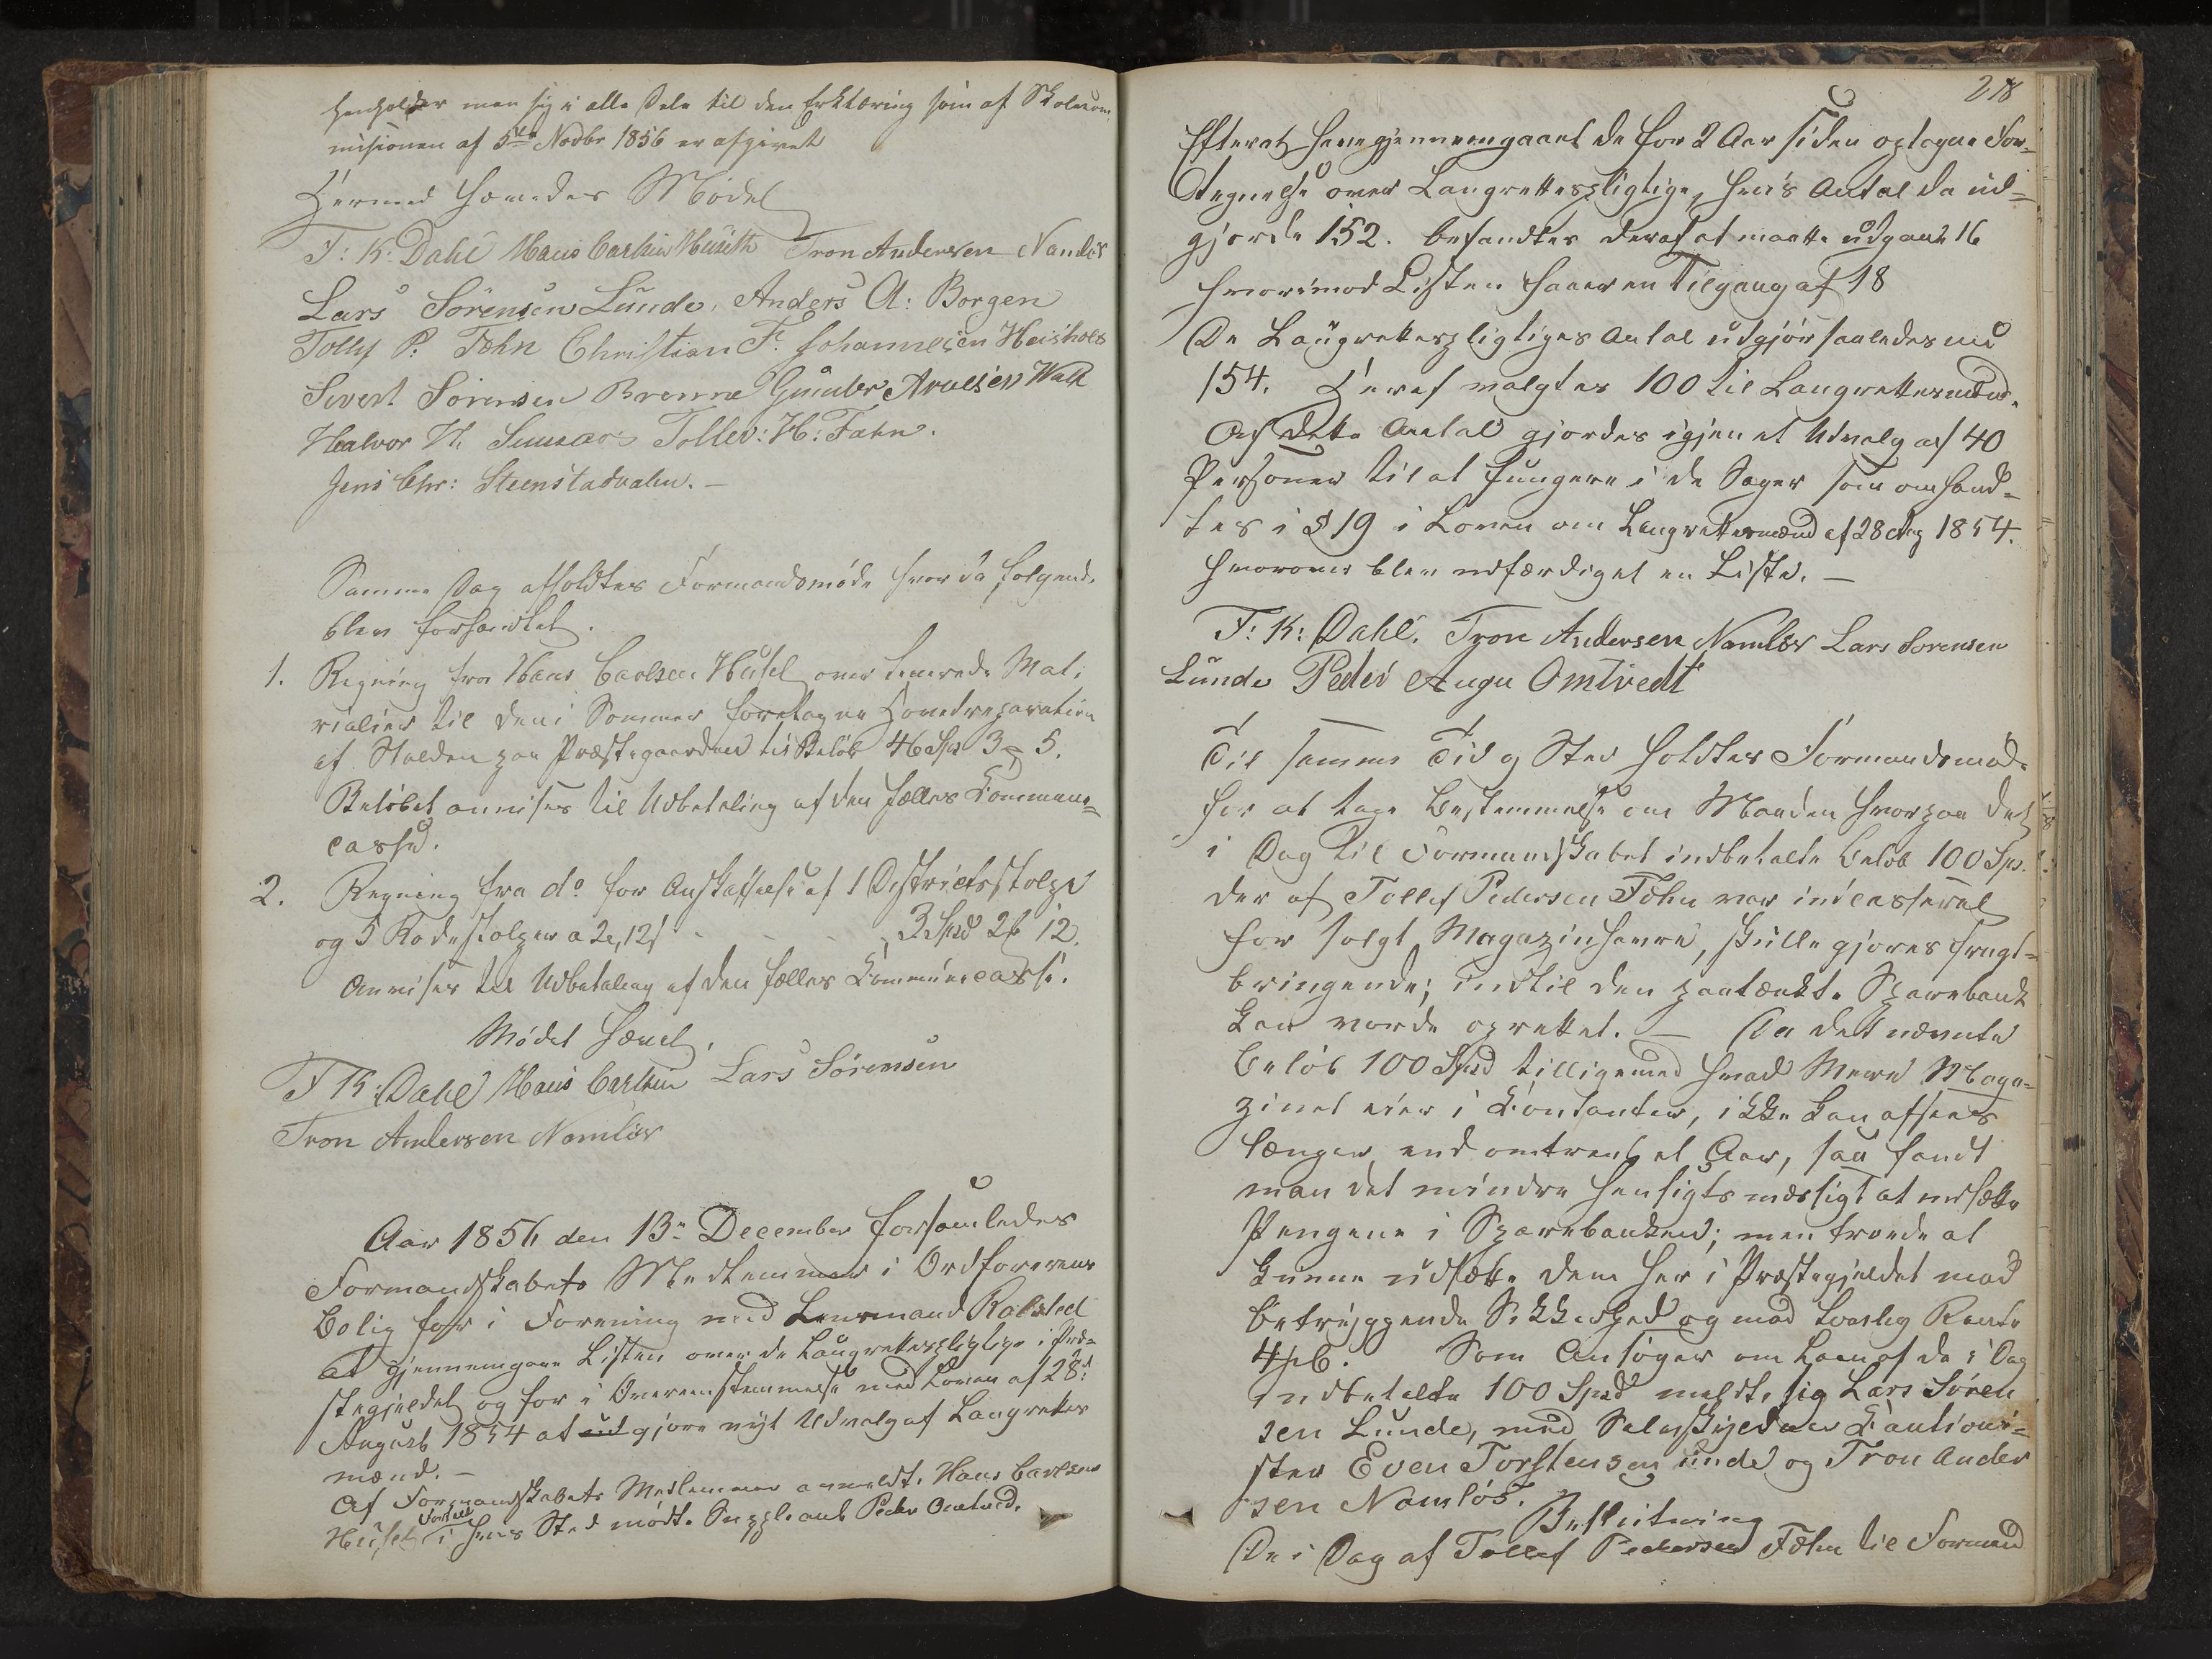 henholder man sig i alle Dele til den Erklæring som af Skolecom
misionen af 5te Novbr 1856 er afgivet
Hermed hævedes Mødet
F: K: Dahl Hans Carlsen Huseth Tron Andersen Namløs
Lars Sörensen Lunde, Anders A: Borgen
Tollef P: Föhn Christian F. Johannesen Heisholt
Sivert Sörensen Brenne Gunder Arvesen Walle
Halvor H. Tollev: H: Fæhn.
Jens Chr: Steenstadvalen. —
Samme Dag afholdtes Formandsmøde hvor da følgende
blev forhandlet.
1. Regning fra Hans Carlsen Huset over leverede Mate
rialier til den i Sommer foretagne Hovedreparation
af Stalden paa Præstegaarden til Beløb 46 Spd 3 5.
Beløbet anvises til Udbetaling af den fælles Commune=
casse.
2. Regning fra do for Anskaffelse af 1 Districtsstolpe
og 5 Rodestolper a 2, 12 - - - 3 Spd 2 12.
Anvises til Udbetaling af den fælles Communecasse.
Mødet hævet,
F K: Dahl Hans Carlsen Lars Sörensen
Tron Andersen Namlös
Aar 1856 den 13de December forsamledes
Formandskabets Medlemmer i Ordførerens
Bolig for i Forening med Lensmand Rolsted
at gjennemgaae Listen over de Laugrettespligtige i Præ=
stegjeldet og for i Overeensstemmelse med Loven af 28de
August 1854 at ud gjøre nyt Udvalg af Laugrettes
mænd. —
Af Formandskabets Medlemmer anmeldte Hans Carlsen
Huset Forfald i hvis Sted mødte Suppleant Peder Omtved.
218
Efterat have gjennemgaaet de for 2 Aar siden optagne For=
tegnelse over Laugrettespligtige, hvis Antal da ud=
gjorde 152. befandtes deraf at maatte udgaae 16
hvorimod Listen haver en Tilgang af 18
De Laugrettespligtiges Antal udgjør saaledes nu
154. Heraf valgtes 100 til Laugrettesmænd.
Af dette Antal gjordes igjen et Udvalg af 40
Personer til at fungere i de Sager som omhand=
les i § 19 i Loven om Laugrettesmænd af 28 Aug 1854.
hvorover blev udfærdiget en Liste. —
F: K: Dahl. Tron Andersen Namløs Lars Sorensen
Lunde Peder Augu Omtvedt
Til samme Tid og Sted holdtes Formandsmøde
for at tage Bestemmelse om Maaden hvorpaa det
i Dag til Formandskabet indbetalte Beløb 100 Spd.
der af Tollef Pedersen Föhn var indcasseret
for solgt Magazinhavre, skulle gjøres frugt=
bringende; indtil den paatænkte Sparebank
kan vorde oprettet. — Da det nævnte
Beløb 100 Spd tilligemed hvad Mere Maga=
zinet eier i Contanter, ikke kan afsees
længer end omtrent et Aar, saa fandt
man det mindre hensigtsmæssigt at indsætte
Pengene i Sparebanken; men troede at
kunne udsætte dem her i Præstegjeldet mod
betryggende Sikkerhed og mod lovlig Rente
4 pC. Som Ansøger om Laan af de i Dag
indbetalte 100 Spd meldte sig Lars Sören
sen Lunde, med Selvskyldner Cautioni=
ster Even Torstensen Lunde og Tron Ander
sen Namlös.
Beslutning
De i Dag af Tollef Pedersen Föhn til Formand